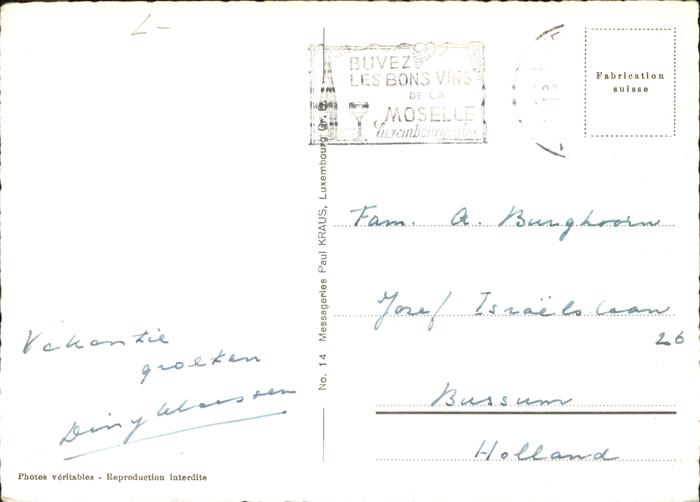 L-
BUVEZ
LES BONS VINS
DE LA
MOSELLE
luxembourgeoise
Fabrication
suisse
No. 14 Messageries Paul KRAUS, Luxembourg Gr. D.
Fam. A. Burghoorn
Jozef Israëlslaan
26
Bussum
Holland
Vakantie
groeten
Diny Klaessen
Photos véritables - Reproduction interdite